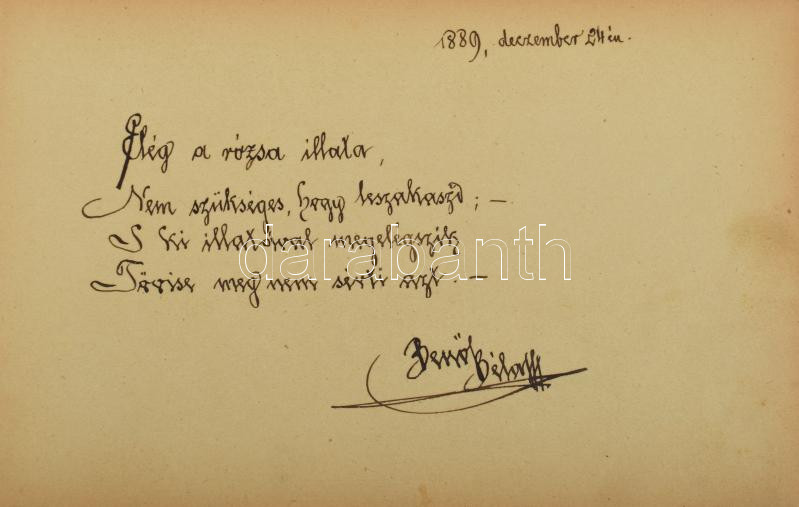 1889, deczember 24én.
Elég a rózsa illata,
Nem szükséges, hogy leszakaszd; –
S ki illatával megelegszik
Tövise meg nem sérti azt. –
Benő Béla
darabanth